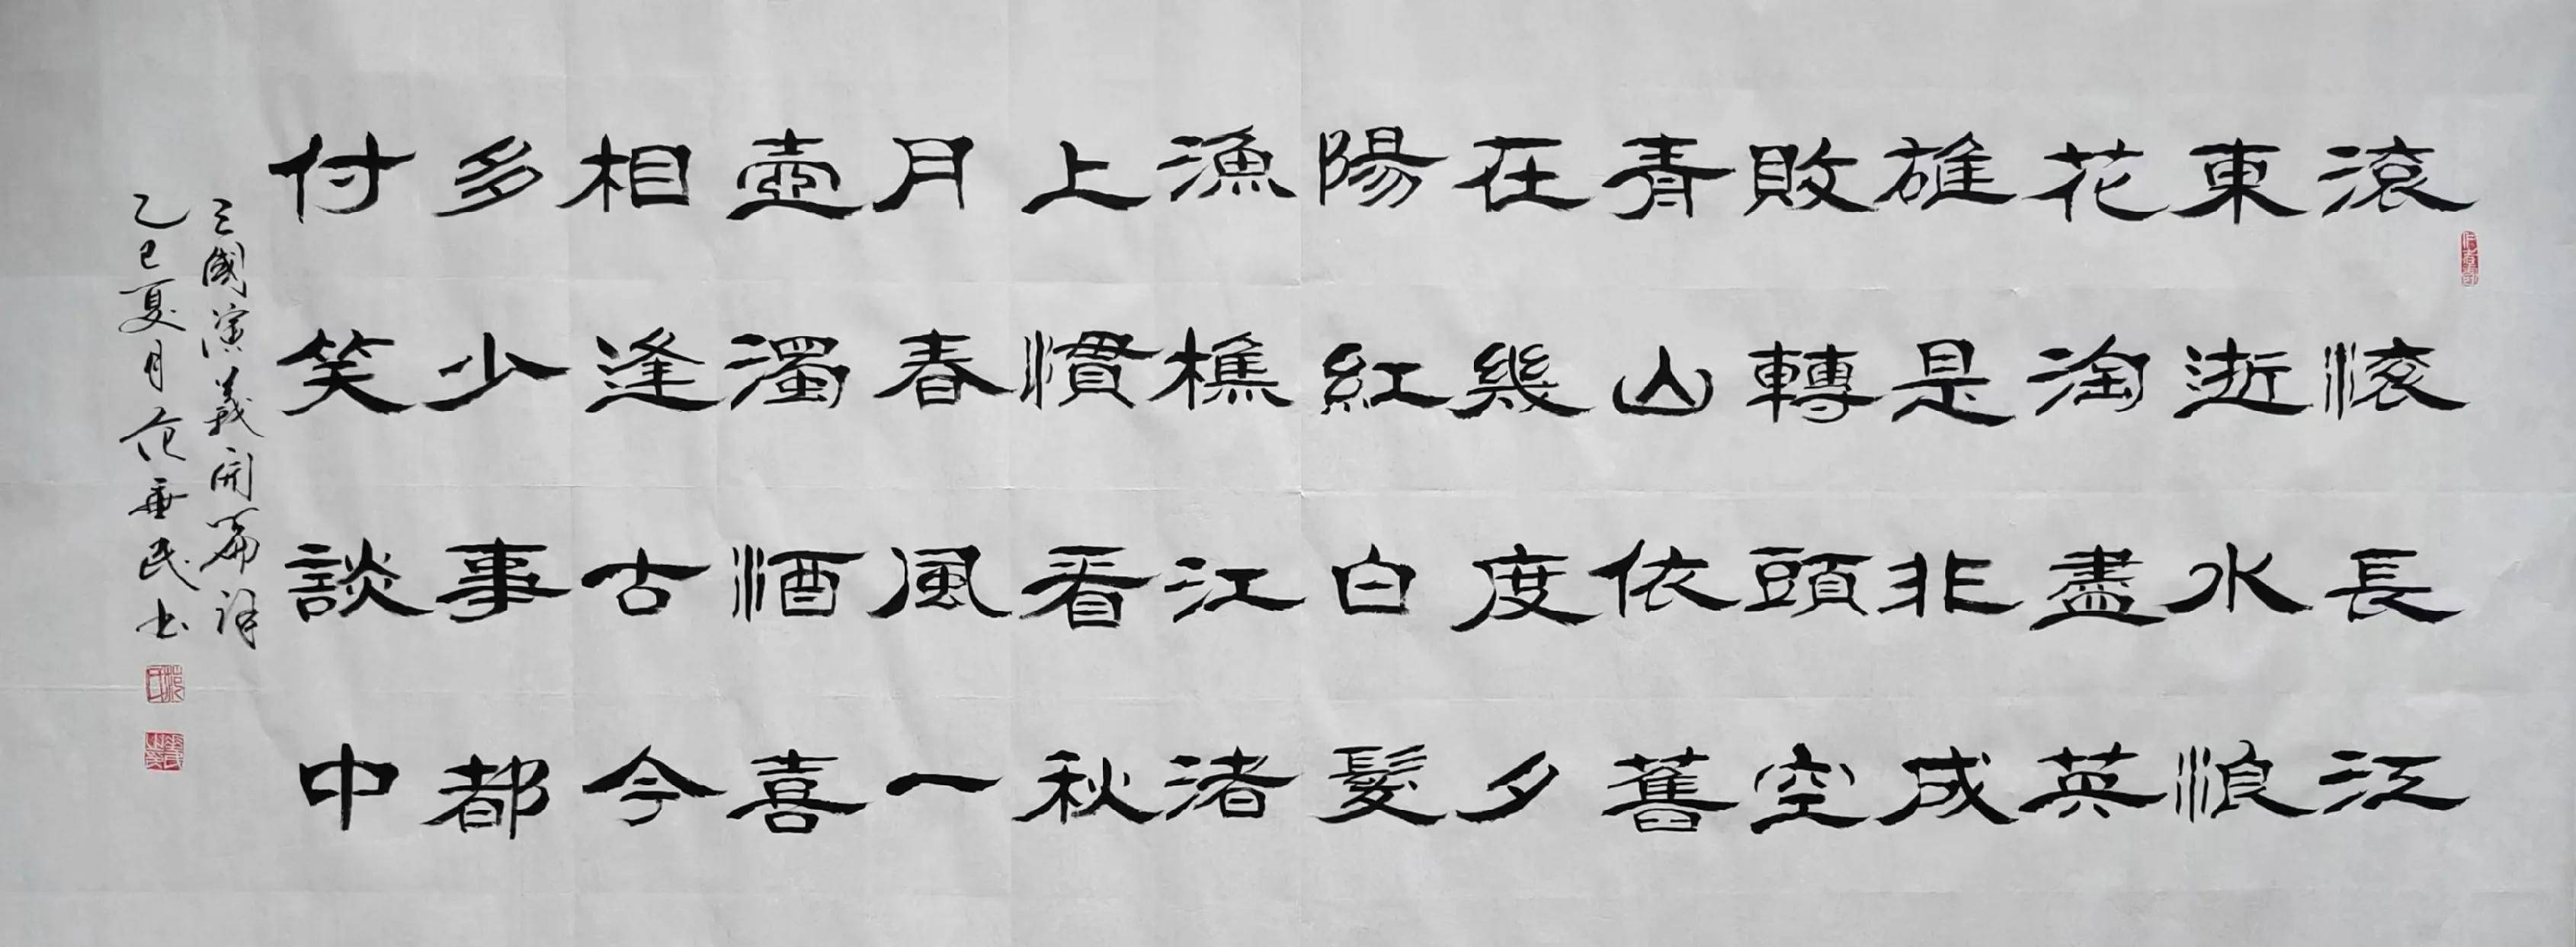 滚滚長江
東逝水浪
花淘盡英
雄是非成
敗轉頭空
青山依舊
在幾度夕
陽紅白髮
漁樵江渚
上慣看秋
月春風一
壺濁酒喜
相逢古今
多少事都
付笑談中
三國演義開篇
乙巳夏月范垂民书